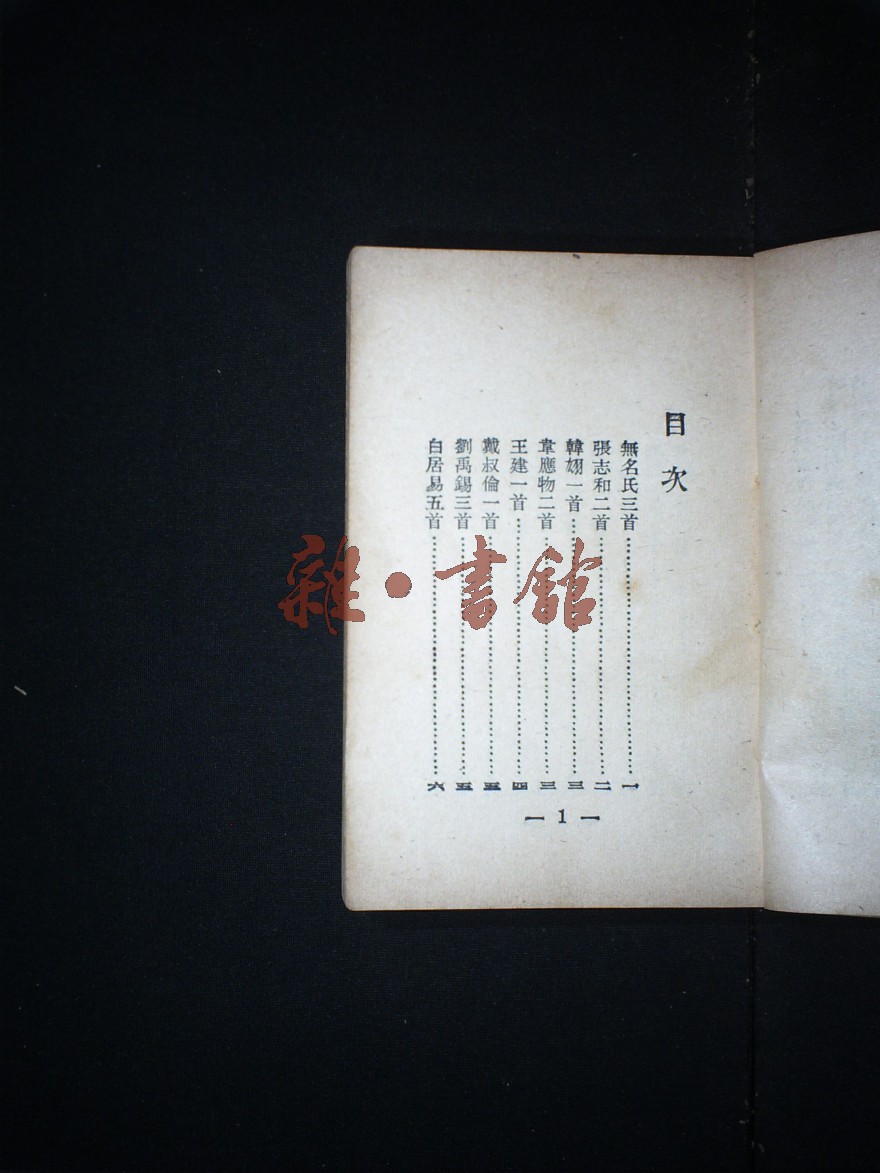 目次
無名氏三首……一
張志和二首……二
韓翃一首……三
韋應物二首……三
王建一首……四
戴叔倫一首……五
劉禹錫三首……五
白居易五首……六
— 1 —
雜·書館